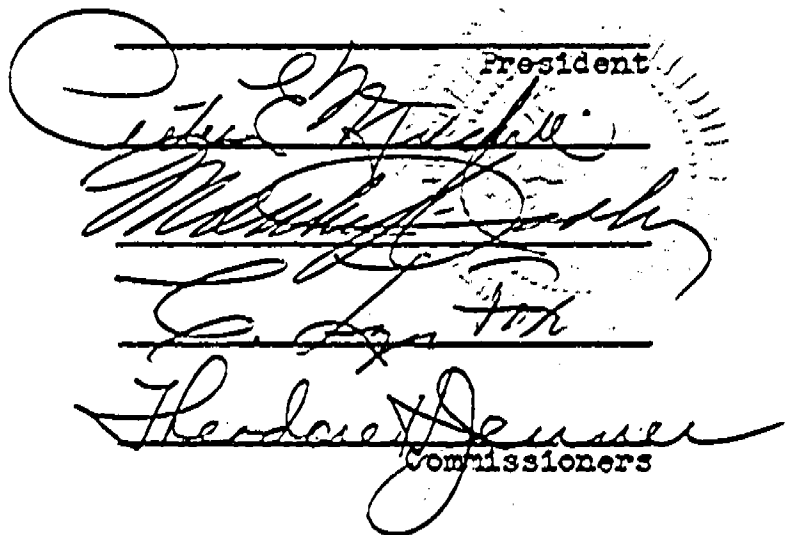 President
Peter E. Mitchell
C. Lyn Fox
Theodore Jenner
Commissioners